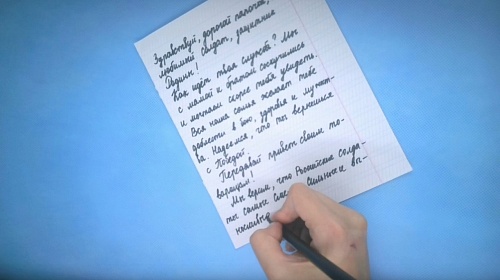 Здравствуй, дорогой папочка,
любимый солдат, защитник
Родины!
Как идёт твоя служба? Мы
с мамой и братом соскучились
и мечтаем скорее тебя увидеть.
Вся наша семья желает тебе
доблести в бою, здоровья и мужест-
ва. Надеемся, что ты вернешься
с Победой.
Передавай привет своим то-
варищам!
Мы верим, что Российские солда-
ты самые сильные и вы-
носливы